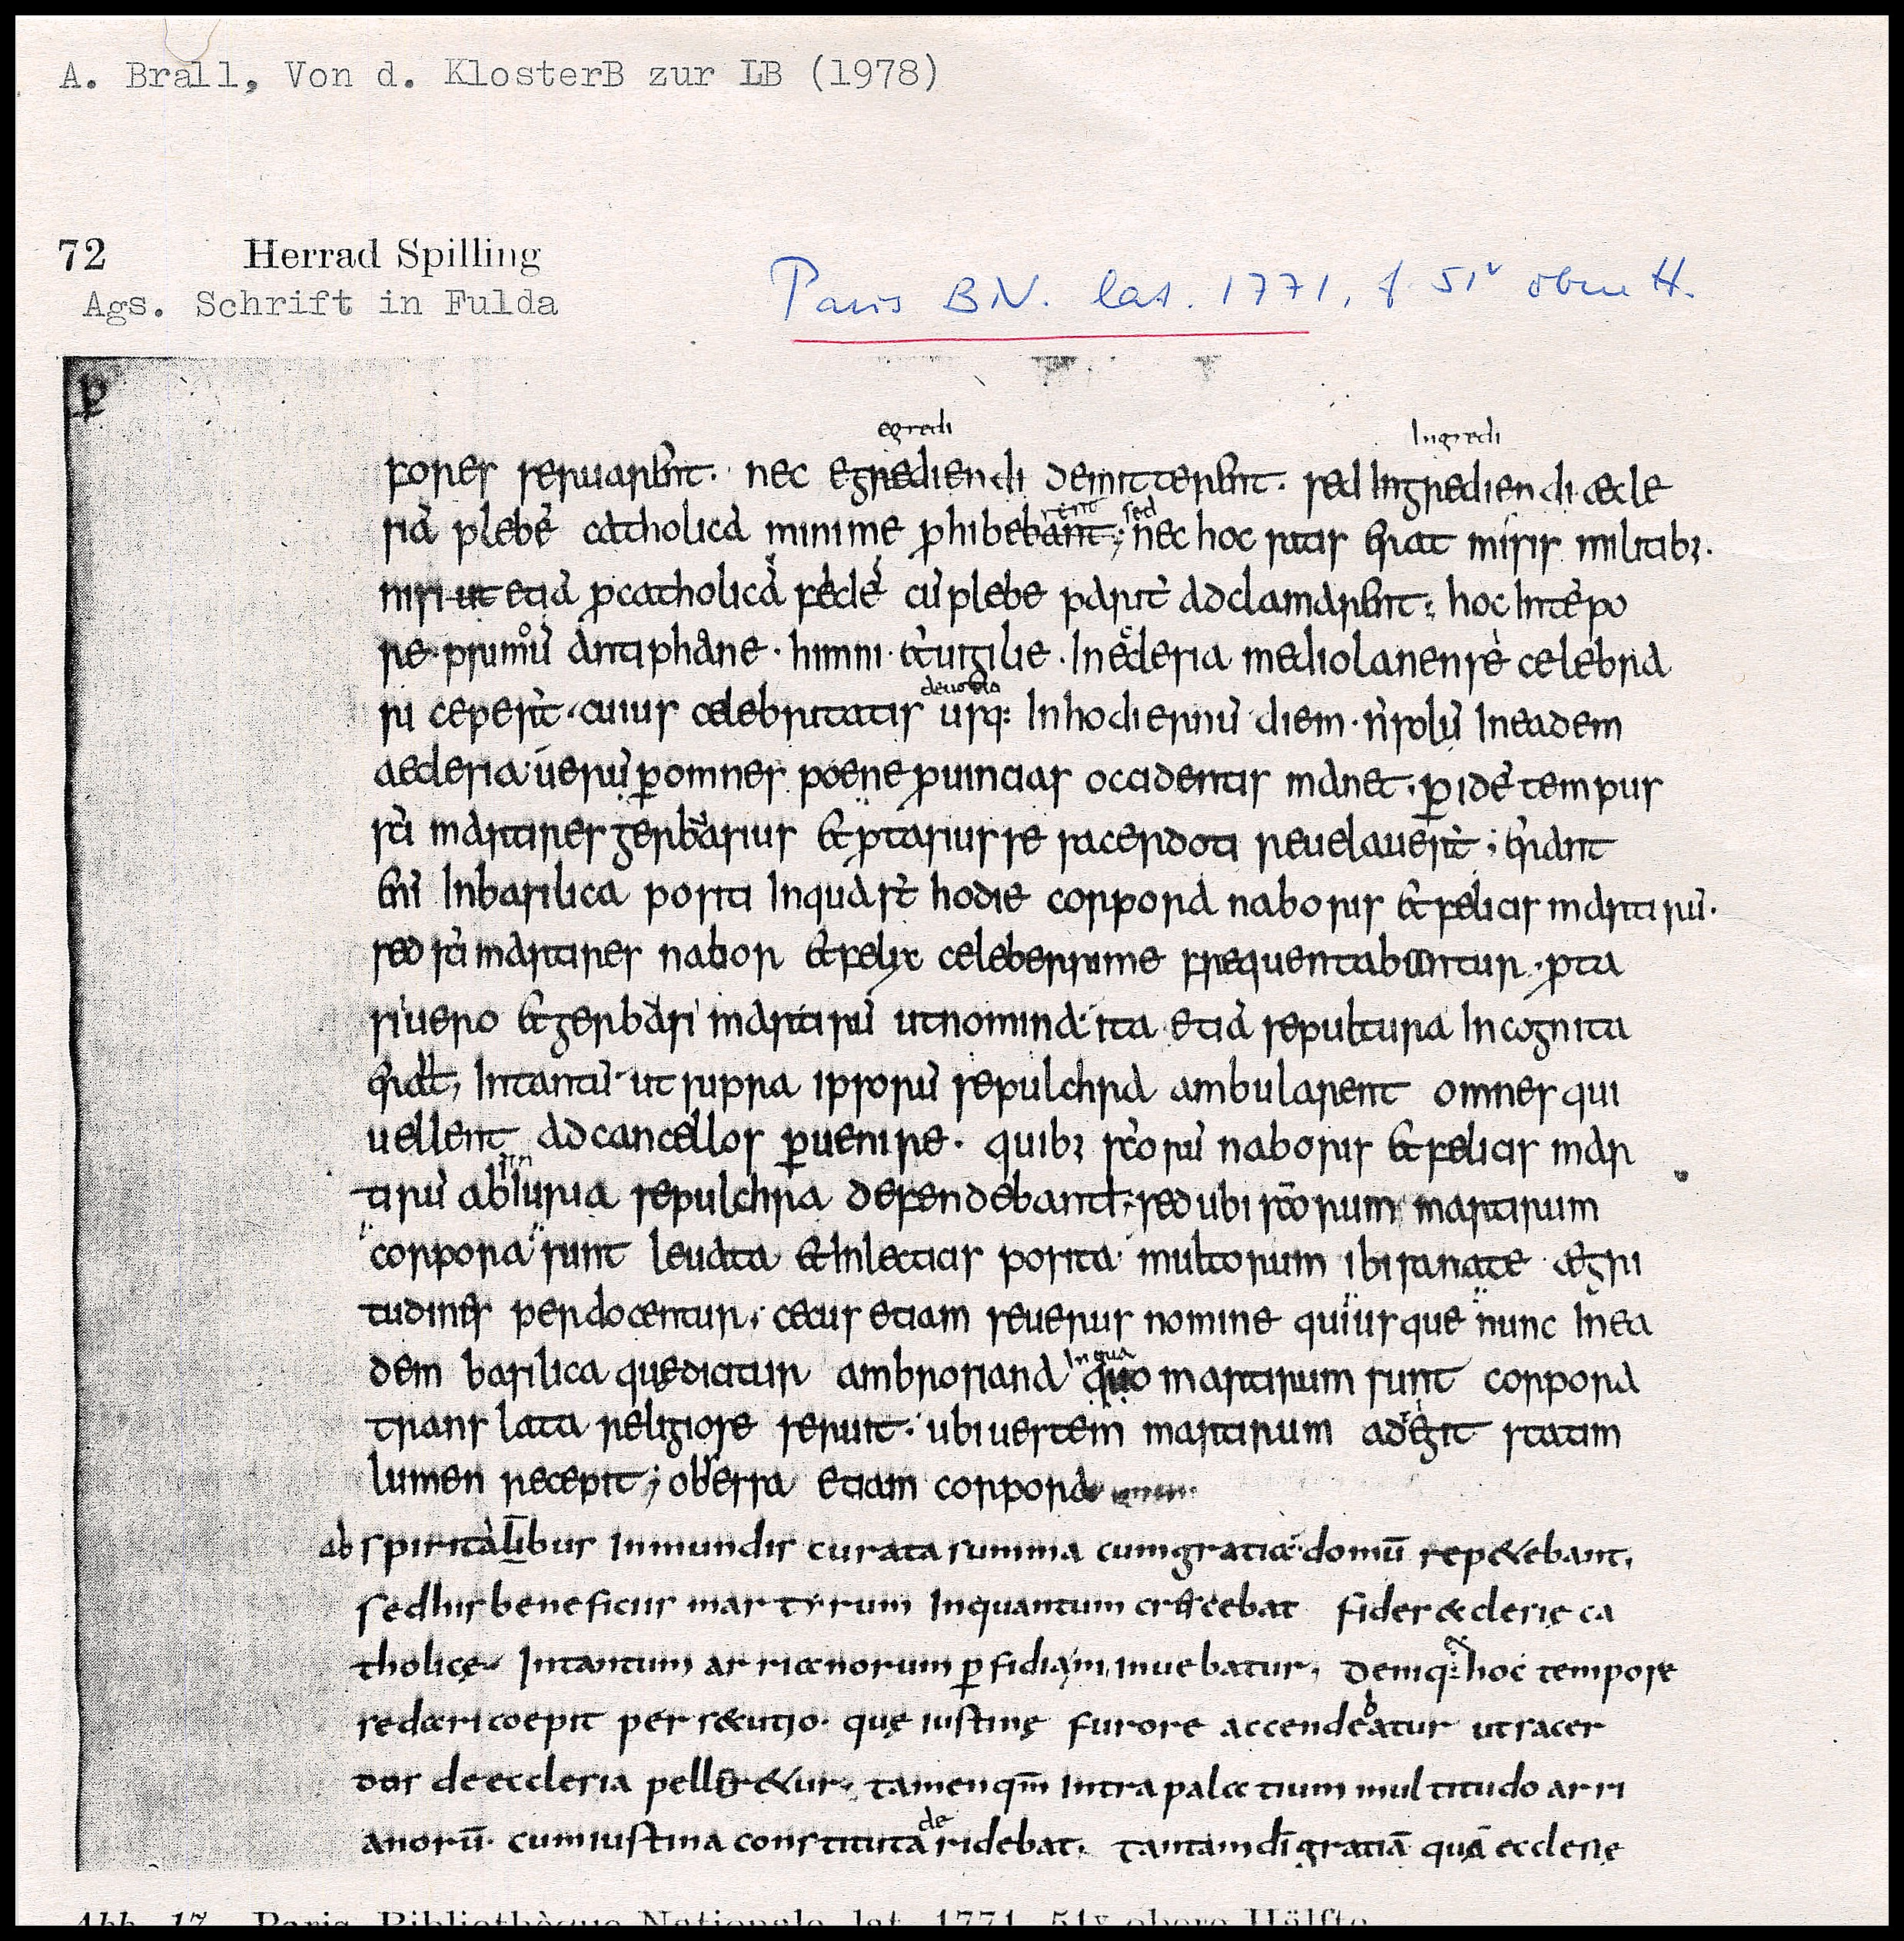 A. Brall, Von d. KlosterB zur LB (1978)
72 Herrad Spilling
Ags. Schrift in Fulda
Paris BN. lat. 1771, f 51v obere H.
p
egredi Ingredi
fores seruarent. nec egrediendi demitterent. sed Ingrediendi. æcle
rent sed
siā plebē catholicā minime ꝓhibebant; nec hoc satis erat misis militibꝫ.
nisi ut etiā ꝓ catholicā fidē cū plebe parit̄ adclamarent: hoc Intēpo
re. primū antiphane. himni. et uigilie. In eclesia mediolanensē celebra
deuotio
ri ceperūt. cuius celebritatis usq: In hodiernū diem. n̄ solū In eadem
aeclesia. uerū ꝑ omnes poene ꝓuincias occidentis manet. ꝑ idē tempus
sc̄i martires gerbasius et ꝓtasius se sacerdoti reuelauerūt; erant
enī In basilica positi In qua st̄ hodie corpora naboris et felicis martirū.
sed sc̄i martires nabor et felix celeberrime frequentabantur. ꝓta
si uero et gerbasi martirū ut nomina. ita etiā sepultura Incognita
erat, Intantū. ut supra ipsorū sepulchra ambularent omnes qui
uellent ad cancellos ꝑuenire. quibꝫ sc̄orū naboris et felicis mar
tirū ab Iniuria sepulchra defendebant. sed ubi sc̄orum martirum
corpora sunt leuata et In lecticis posita. multorum ibi sanate ægri
tudines perdocentur. cecus etiam seuerus nomine qui usque nunc In ea
In qua
dem basilica quę dicitur ambrosiana quo martirum sunt corpora
translata religiose seruit. ubi uestem martirum adtegit statim
lumen recepit; obsessa etiam corpora
ab spiritalibus Inmundis curata summa cum gratia domū repetebant,
sed his beneficiis martyrum Inquantum crescebat fides æcclesię ca
tholicę Intantum arrianorum ꝑfidiam minuebatur, Deniq: ex hoc tempore
sedari coepit persecutio. quę iustinę furore accendebatur ut sacer
dos de ecclesia pelleretur. tamen qm̄ Intra palatium multitudo arri
de
anorū. cum iustina constituta ridebat. tantam dī gratiā quā ecclesię
Abb. 17 Paris, Bibliothèque Nationale, lat. 1771, 51v obere Hälfte